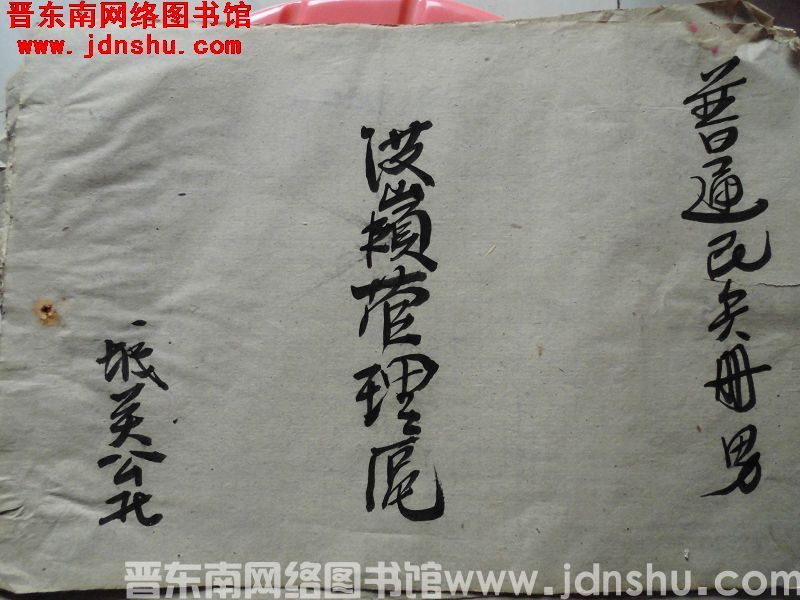 晋东南网络图书馆
www.jdnshu.com
普通民兵册男
洪嶺管理区
城关公社
晋东南网络图书馆www.jdnshu.com